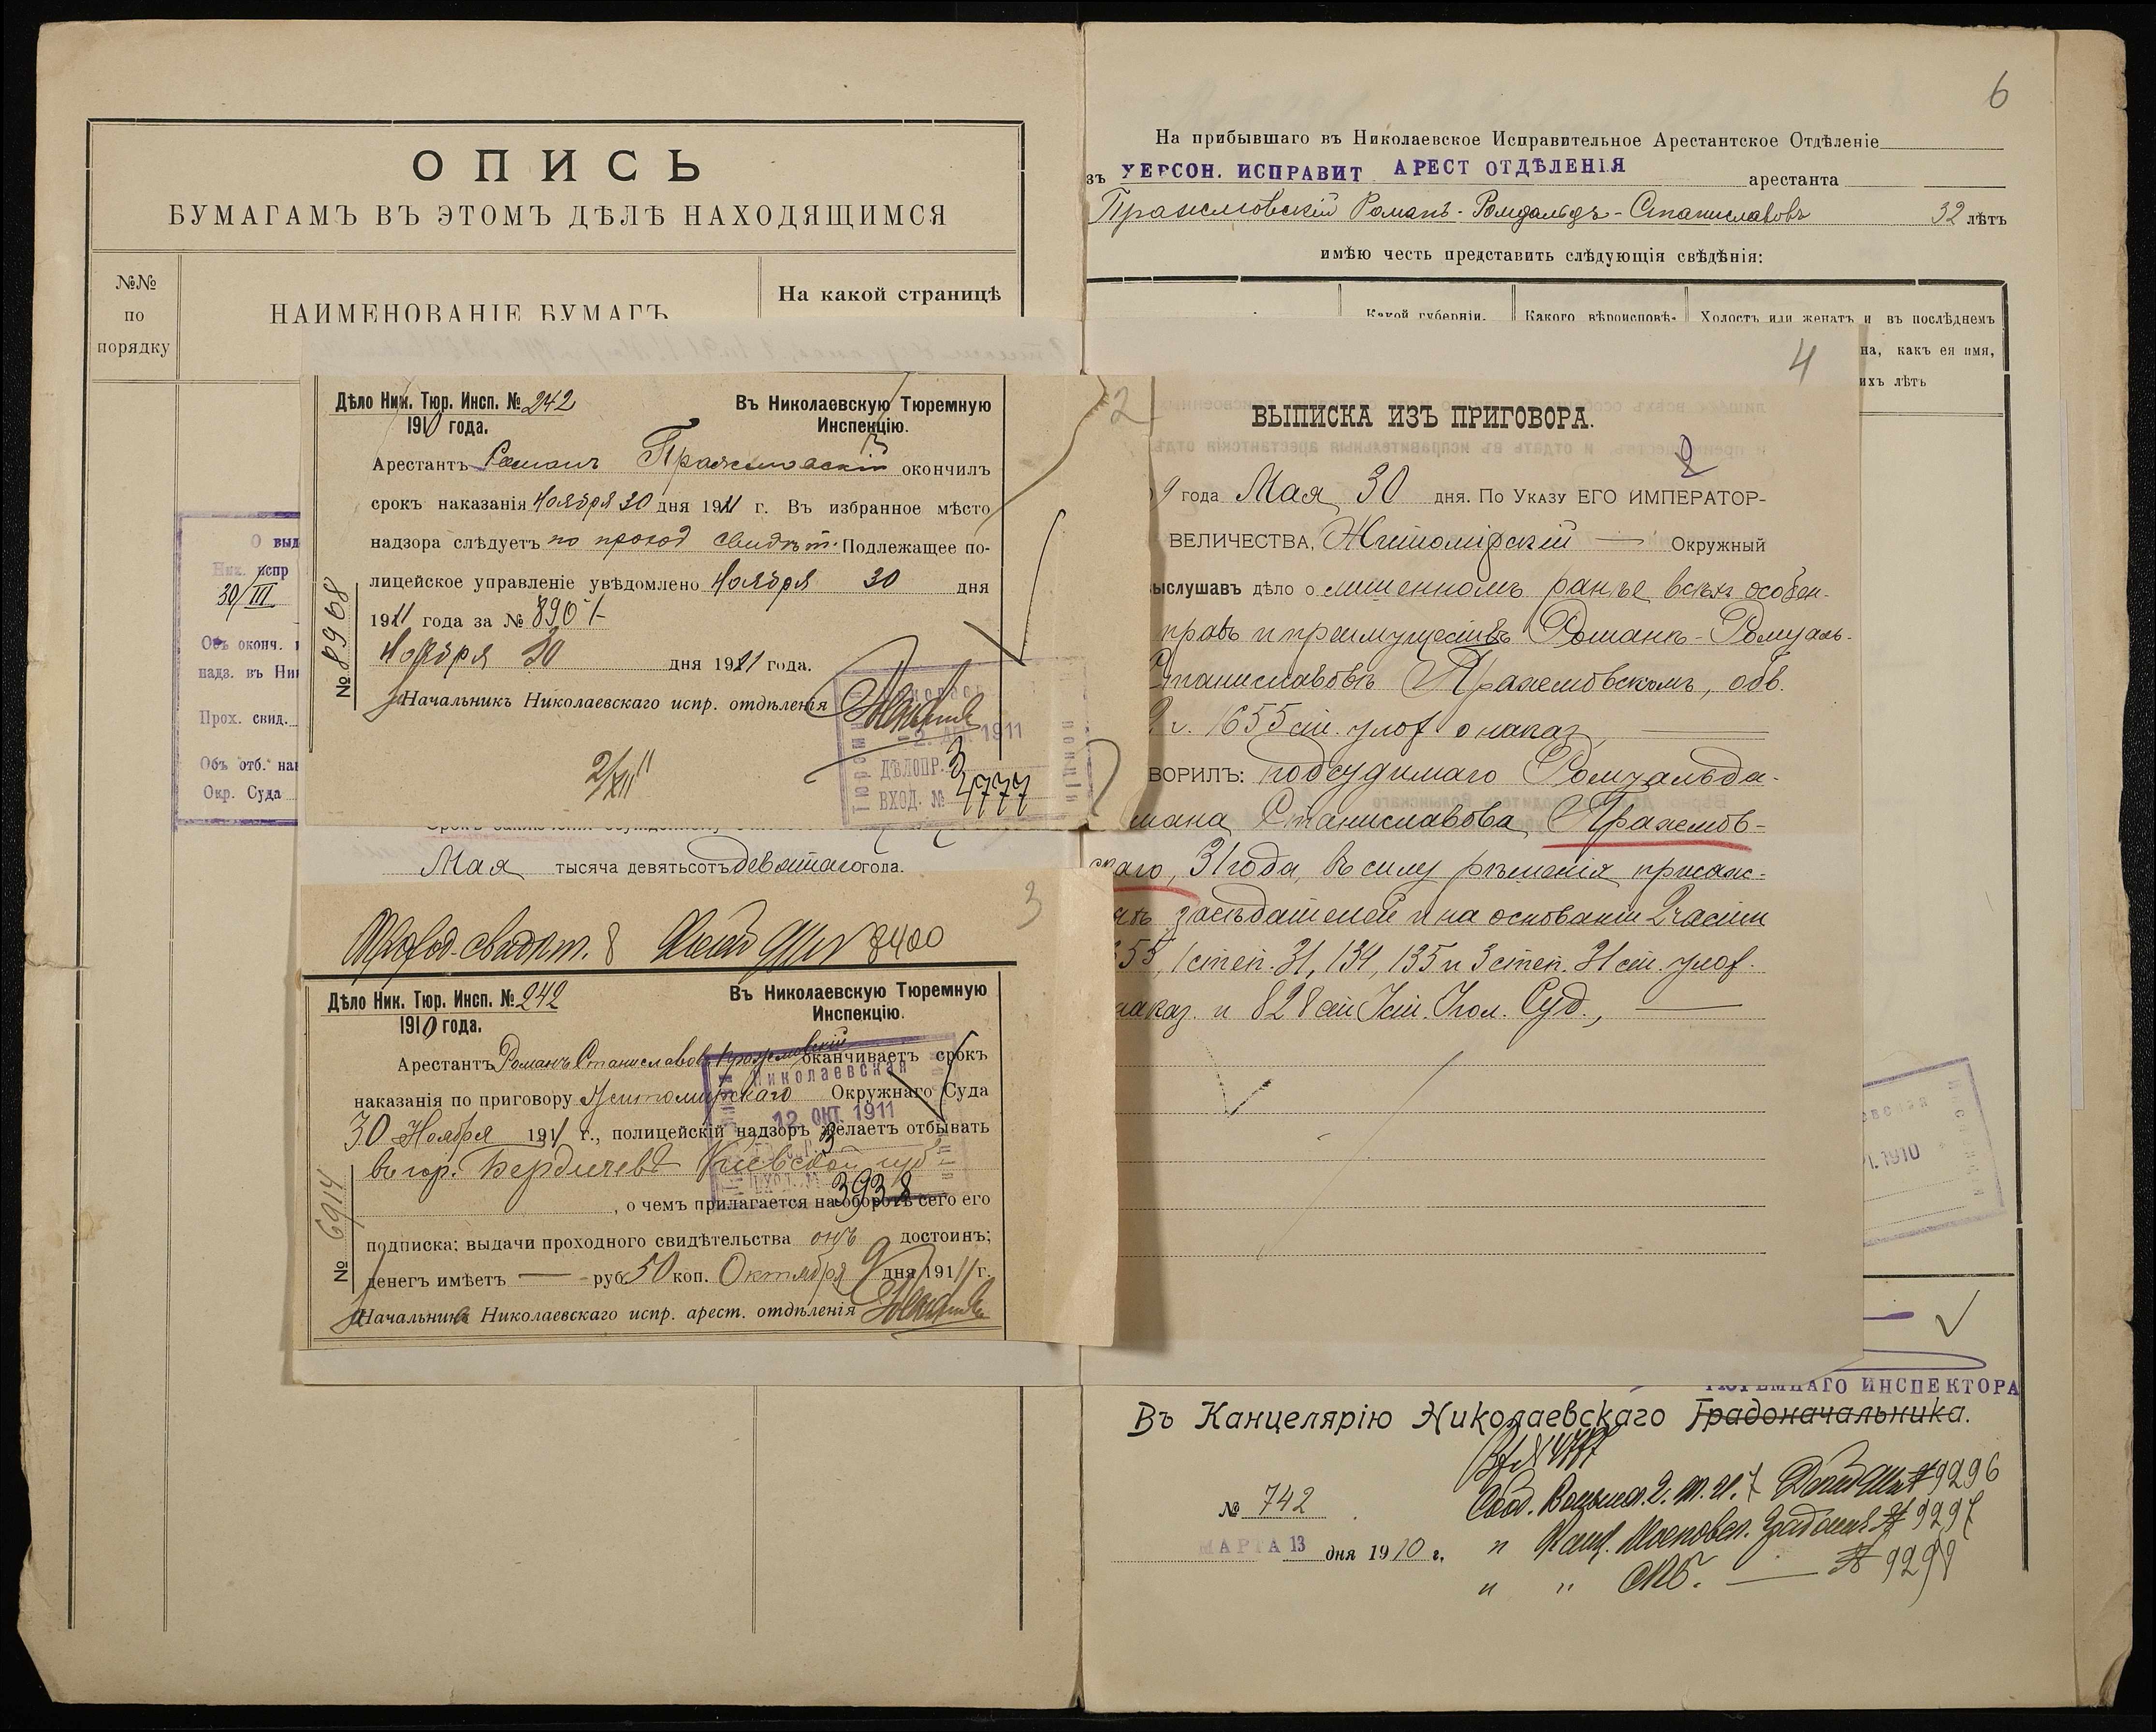 ОПИСЬ
БУМАГАМЪ ВЪ ЭТОМЪ ДѢЛѢ НАХОДЯЩИМСЯ
№№
по
порядку
НАИМЕНОВАНІЕ БУМАГЪ
На какой страницѣ
О выд
Ник. испр
30/III
Объ оконч.
надз. въ Ни
Прох. свид.
Объ отб. на
Окр. Суда
2
Дѣло Ник. Тюр. Инсп. № 242
1910 года.
Въ Николаевскую Тюремную
Инспекцію.
Арестантъ Романъ Пражмовскій окончилъ
срокъ наказанія Ноября 30 дня 1911 г. Въ избранное мѣсто
надзора слѣдуетъ по проход свидѣт. Подлежащее по-
лицейское управленіе увѣдомлено Ноября 30 дня
1911 года за № 8901
Ноября 30 дня 1911 года.
Начальникъ Николаевскаго испр. отдѣленія
№ 8968
2/XII 11
2. ДЕК. 1911
ДѢЛОПР. 3
ВХОД. № 4777
Мая тысяча девятьсотъ девятаго года.
3
Проход. свидѣт. 8400
Дѣло Ник. Тюр. Инсп. № 242
1910 года.
Въ Николаевскую Тюремную
Инспекцію.
Арестантъ Романъ Станиславовъ Пражмовскій оканчиваетъ срокъ
наказанія по приговору Житомирскаго Окружнаго Суда
30 Ноября 1911 г., полицейскій надзоръ желаетъ отбывать
въ гор. Бердичевѣ Кіевской губ
, о чемъ прилагается на оборотѣ сего его
подписка; выдачи проходного свидѣтельства онъ достоинъ;
денегъ имѣетъ — руб 50 коп. Октября 9 дня 1911 г.
Начальникъ Николаевскаго испр. арест. отдѣленія
№ 6914
Николаевская
12 ОКТ. 1911
3
3938
6
На прибывшаго въ Николаевское Исправительное Арестантское Отдѣленіе
зъ ХЕРСОН. ИСПРАВИТ АРЕСТ ОТДѢЛЕНІЯ арестанта
Пражмовскій Романъ-Ромуальдъ-Станиславовъ 32 лѣтъ
имѣю честь представить слѣдующія свѣдѣнія:
Какой губерніи,
Какого вѣроисповѣ-
Холостъ или женатъ и въ послѣднемъ
на, какъ ея имя,
ихъ лѣтъ
4
ВЫПИСКА ИЗЪ ПРИГОВОРА.
2
9 года Мая 30 дня. По Указу ЕГО ИМПЕРАТОР-
ВЕЛИЧЕСТВА, Житомірскій — Окружный
выслушавъ дѣло о лишенномъ ранѣе всѣхъ особен-
правъ и преимуществъ Романѣ-Ромуаль-
Станиславовѣ Пражмовскомъ, обв.
2 ч. 1655 ст. улож о наказ,
ВОРИЛЪ: подсудимаго Ромуальда-
мана Станиславова Пражмов-
скаго, 31 года, въ силу рѣшенія присяж-
засѣдателей и на основаніи 2 части
55, 1 степ. 31, 134, 135 и 3 степ. 31 ст. улож.
наказ. и 828 ст Уст. Угол. Суд.,
1910
ТЮРЕМНАГО ИНСПЕКТОРА
Въ Канцелярію Николаевскаго Градоначальника.
№ 742
МАРТА 13 дня 1910 г.
№ 9296
№ 9297
" " СПБ. — №